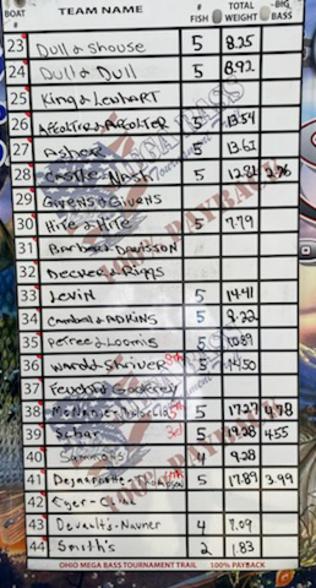 BOAT # TEAM NAME # FISH TOTAL WEIGHT BIG BASS
23 Dull & Shouse 5 8.25
24 Dull & Dull 5 8.92
25 King & Lenhart
26 Affolter & Affolter 5 13.54
27 Asher 5 13.61
28 Castle Nash 5 12.82
29 Givens & Givens
30 Hite & Hite 5 7.79
31 Davisson
32 Decker & Riggs
33 Levin 5 14.41
34 Campbell & Adkins 5 8.22
35 Petree & Loomis 5 10.89
36 Ward & Shriver 5 14.50
37
38 5 17.27 4.78
39 Schar 3rd 5 19.28 4.55
40 Sammons 4 9.28
41 5 17.89 3.99
42
43 4 7.09
44 Smith's 2 1.83
OHIO MEGA BASS TOURNAMENT TRAIL 100% PAYBACK